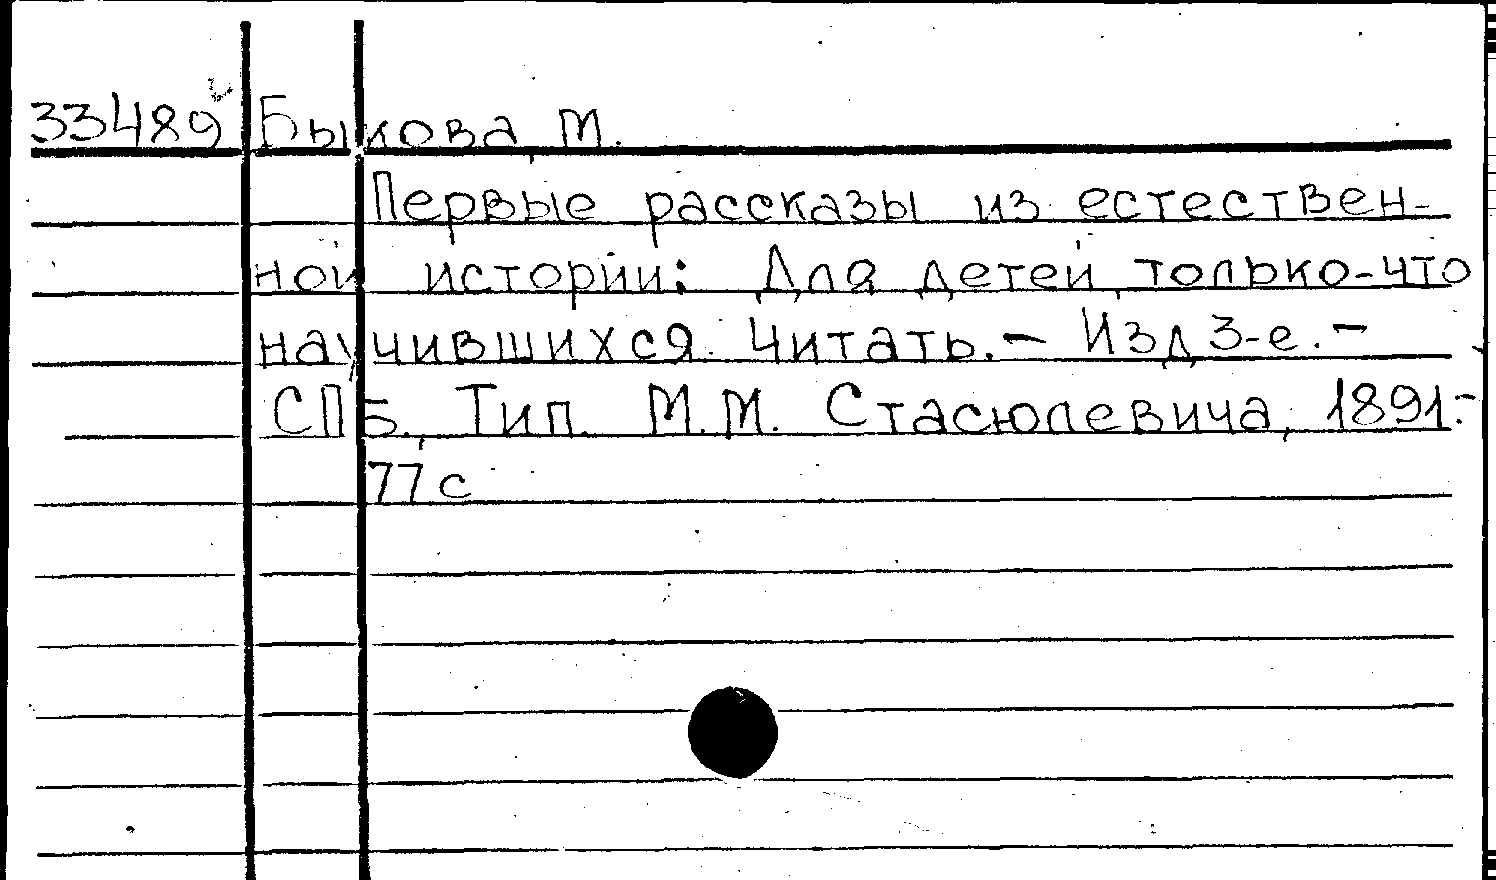 33489 Быкова, М.
Первые рассказы из естествен-
ной истории: Для детей, только-что
научившихся читать. - Изд 3-е. -
СПБ., Тип. М.М. Стасюлевича, 1891.-
77 с